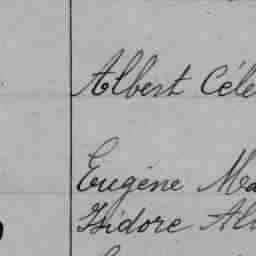 Albert Céle
Eugène Ma
Isidore Al